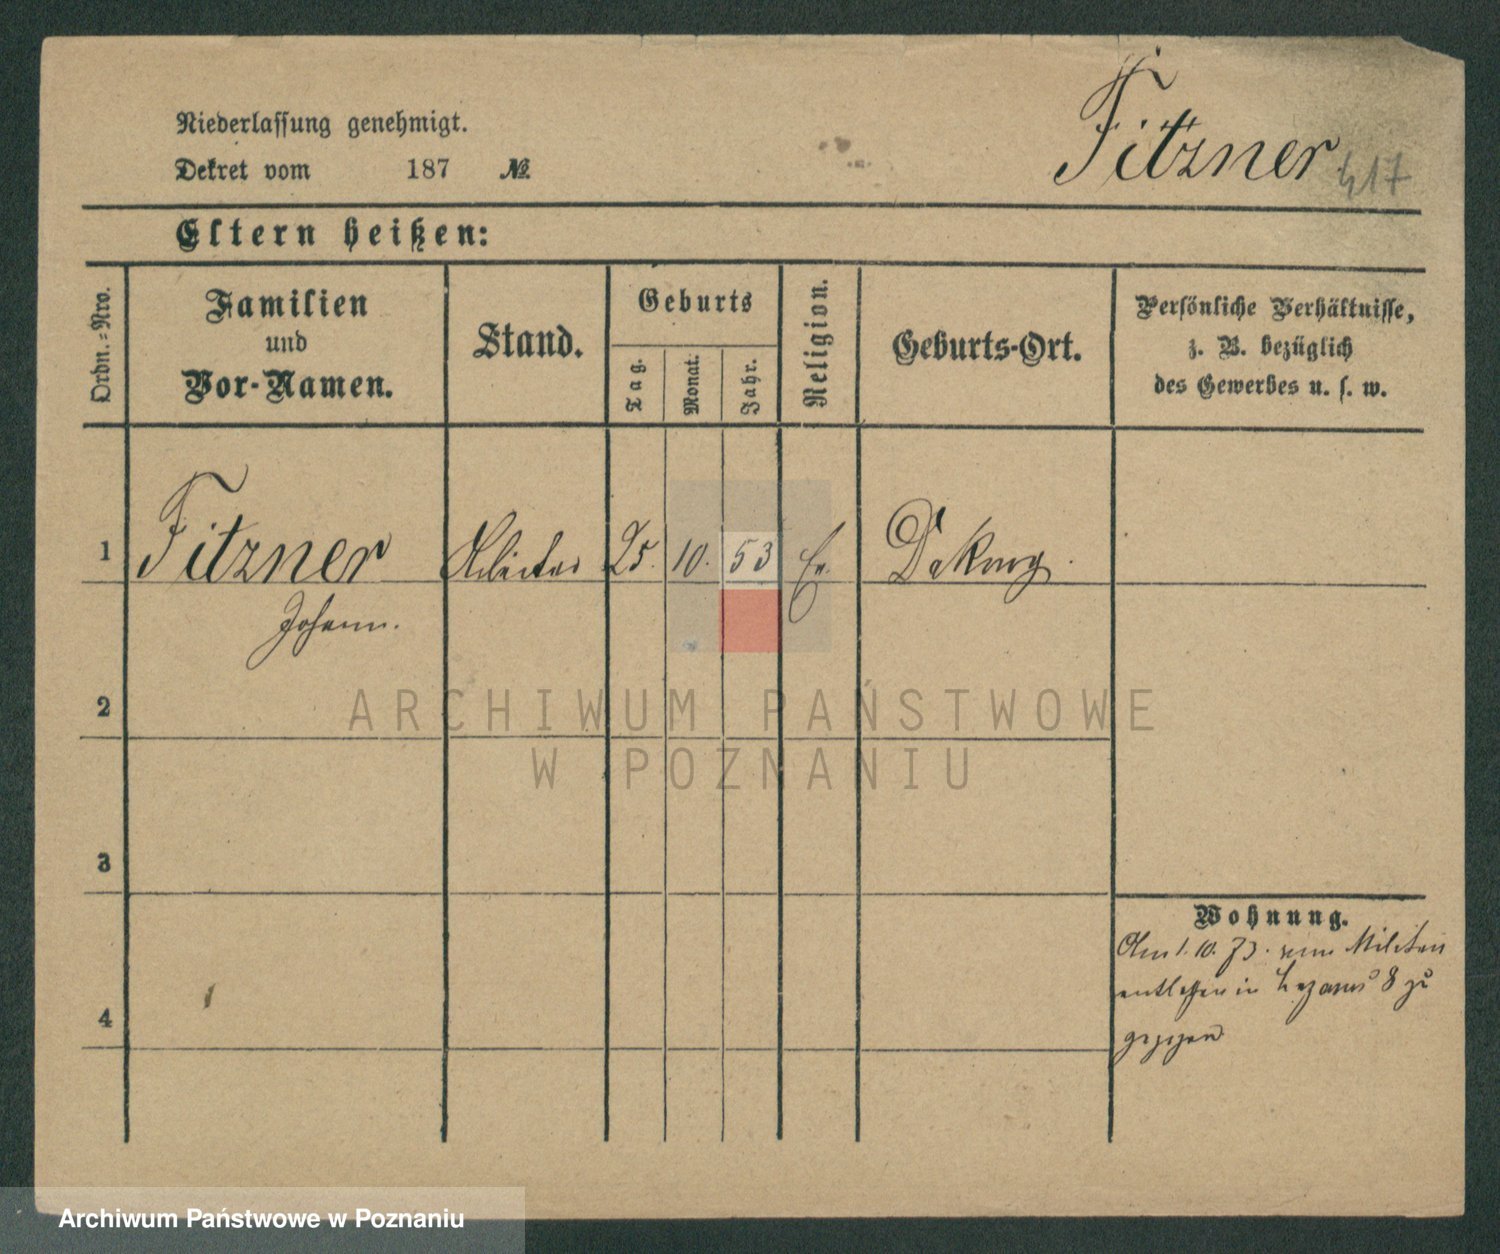 Fitzner
417
Niederlassung genehmigt.
Dekret vom 187 №
Eltern heißen:
Ordn.-Nro.
Familien
und
Vor-Namen.
Stand.
Geburts
Tag.
Monat.
Jahr.
Religion.
Geburts-Ort.
Persönliche Verhältnisse,
z. B. bezüglich
des Gewerbes u. s. w.
1 Fitzner 25. 10. 53 Ev.
Johann.
2
3
4
ARCHIWUM PAŃSTWOWE
W POZNANIU
Wohnung.
Am 1. 10. 73. vom Militair
entlassen in 8 zu
gezogen
Archiwum Państwowe w Poznaniu